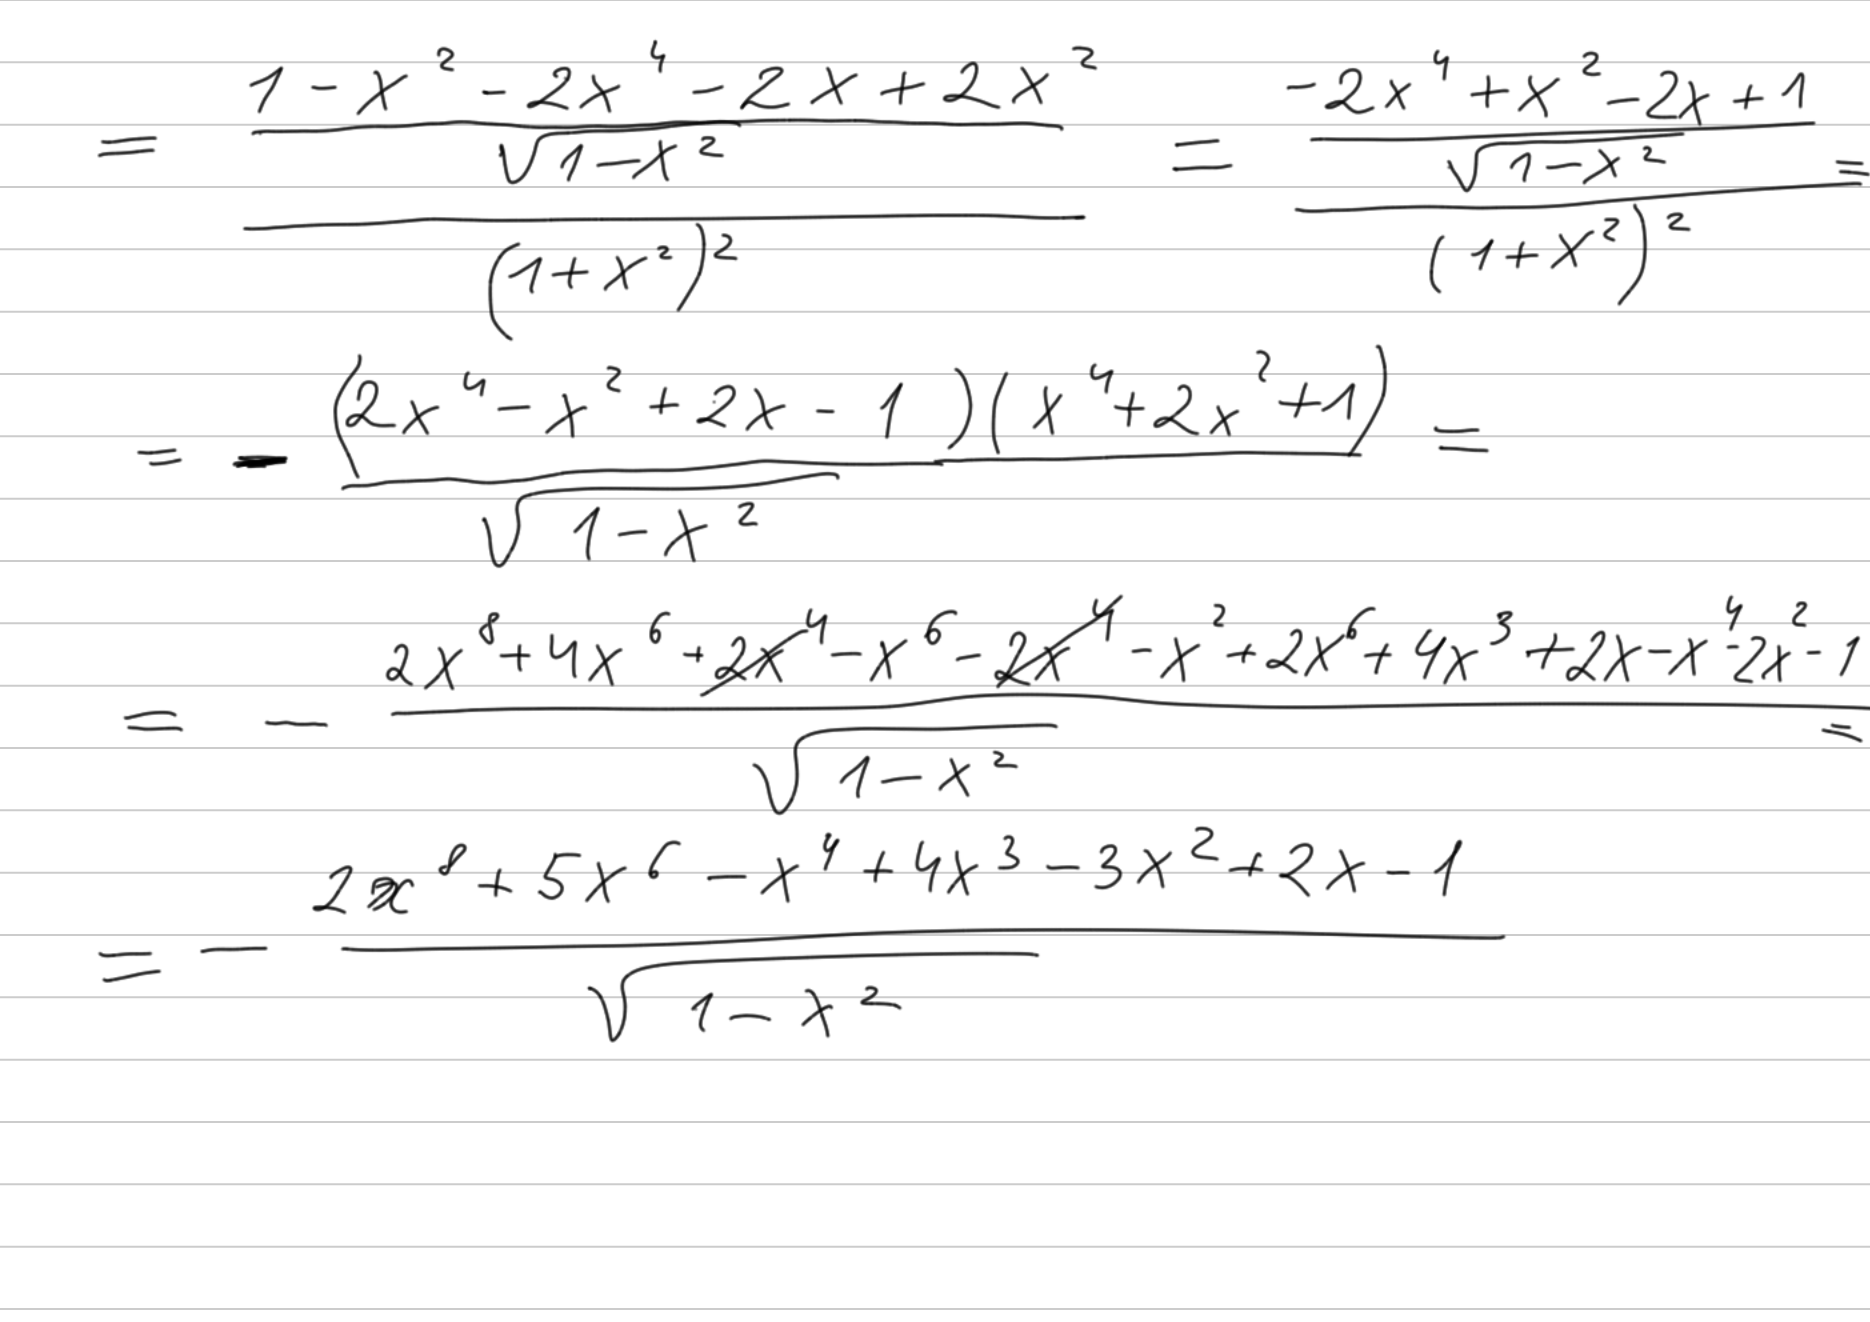 = \frac{\frac{1 - x^2 - 2x^4 - 2x + 2x^2}{\sqrt{1-x^2}}}{(1+x^2)^2} = \frac{\frac{-2x^4 + x^2 - 2x + 1}{\sqrt{1-x^2}}}{(1+x^2)^2} =
= - \frac{(2x^4 - x^2 + 2x - 1)(x^4 + 2x^2 + 1)}{\sqrt{1-x^2}} =
= - \frac{2x^8 + 4x^6 + \cancel{2x^4} - x^6 - \cancel{2x^4} - x^2 + 2x^6 + 4x^3 + 2x - x^4 - 2x^2 - 1}{\sqrt{1-x^2}} =
= - \frac{2x^8 + 5x^6 - x^4 + 4x^3 - 3x^2 + 2x - 1}{\sqrt{1-x^2}}